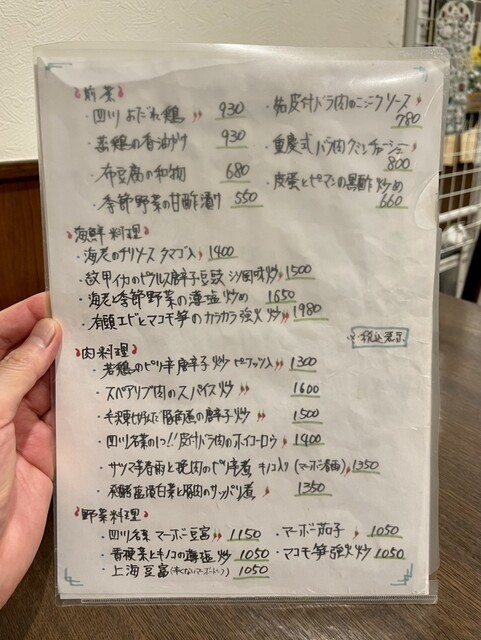 前菜
・四川 よだれ鶏 930
・蒸鶏の香油がけ 930
・布豆腐の和物 680
・季節野菜の甘酢漬け 550
皮付バラ肉のニンニクソース 780
・重慶式バラ肉クミンチャーシュー 800
・皮蛋とピーマンの黒酢炒め 660
海鮮料理
・海老のチリソース タマゴ入 1400
・紋甲イカのピクルス唐辛子豆豉 風味炒 1500
・海老と季節野菜の薄塩炒め 1650
・有頭エビとマコモ筍のカラカラ強火炒 1980
※税込表示
肉料理
・若鶏のピリ辛唐辛子炒 ピーナッツ入 1300
・スペアリブ肉のスパイス炒 1600
・毛沢東 豚角煮の唐辛子炒 1500
・四川名菜の1つ!! 皮付バラ肉のホイコーロウ 1400
・サツマ芋春雨と挽肉のピリ辛煮 キノコ入り(マーボー春雨) 1350
・発酵 漬白菜と豚肉のサッパリ煮 1350
野菜料理
・四川名菜 マーボー豆腐 1150
・マーボー茄子 1050
・香硬菜とキノコの薄塩炒 1050
・マコモ筍強火炒 1050
・上海豆腐(辛くないマーボードーフ) 1050